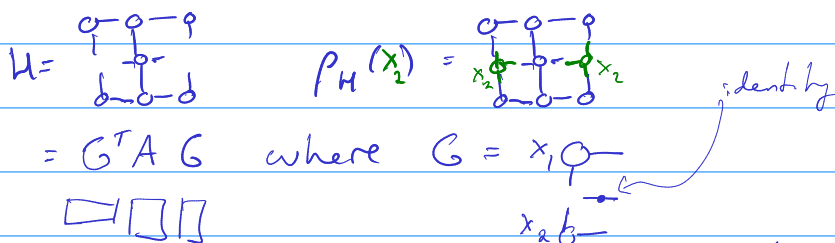 H = ρ_H (x_2) = x_2 x_2
identity
= G^T A G where G = x_1
x_2